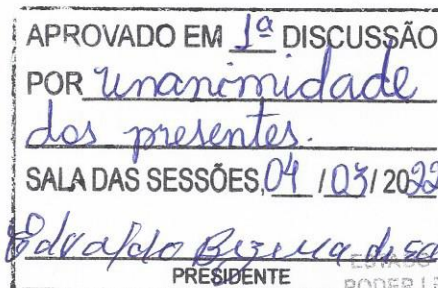 APROVADO EM 1ª DISCUSSÃO
POR unanimidade
dos presentes.
SALA DAS SESSÕES, 04 / 03 / 2022
Edvaldo Bezerra de
PRESIDENTE